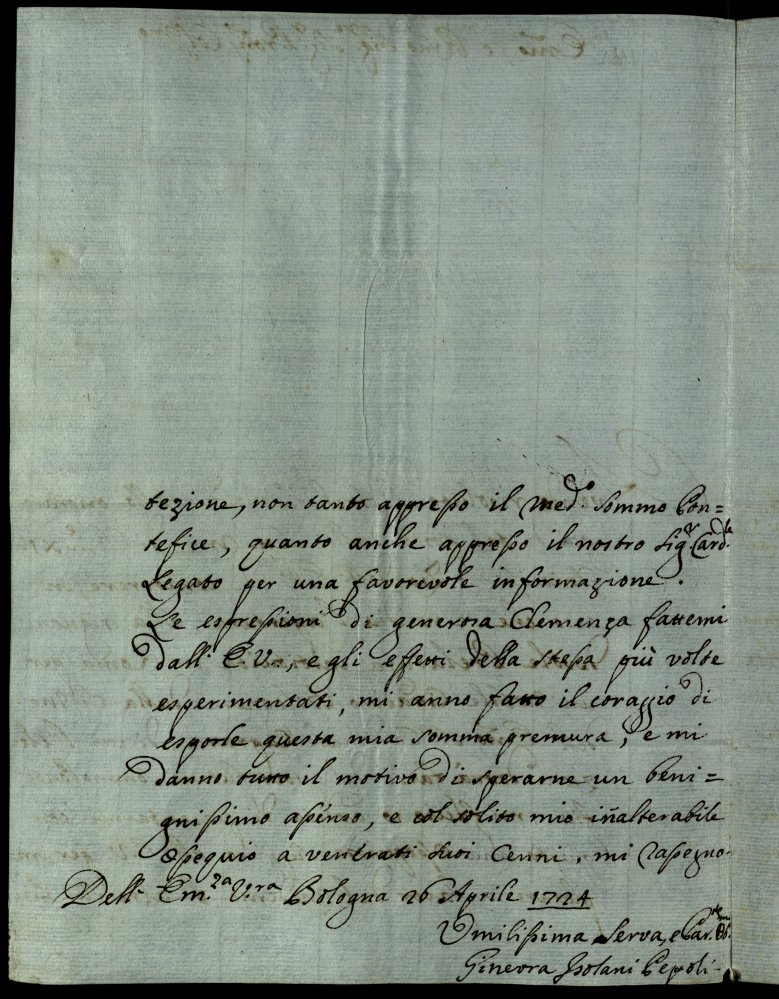 tezione, non tanto appresso il med.º Sommo Pon=
tefice, quanto anche appresso il nostro Sig.r Card.le
Legato per una favorevole informazione.
Le espressioni di generosa Clemenza fattemi
dall' E.V.ra, e gli effetti della stessa più volte
esperimentati, mi anno fatto il coraggio di
esporle questa mia somma premura, e mi
danno tutto il motivo di sperarne un beni=
gnissimo assenso, e col solito mio inalterabile
ossequio a venerati suoi Cenni, mi rassegno
Dell' Em.za V.ra Bologna 26 Aprile 1724
Umilissima Serva, e
Ginevra Isolani Pepoli